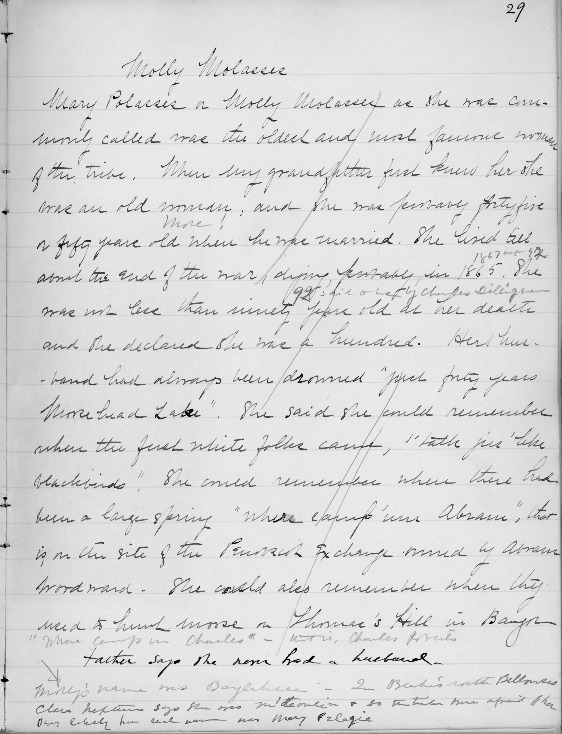 29
Molly Molasses
Mary Polasses or Molly Molasses as she was com-
monly called was the oldest and most famous woman
of the tribe. When my grandfather first knew her she
was an old woman, and she was probably forty five
more
or fifty years old when he was married. She lived till
1867
about the end of the war, dying probably in 1865. She
92 Charles Dillingham
was not less than ninety years old at her death
and she declared she was a hundred. Her hus-
-band had always been drowned "just forty years
Moosehead Lake". She said she could remember
when the first white folks came, "talk jus' like
blackbirds". She could remember when there had
been a large spring "where camp 'um Abram", that
is on the site of the Penobscot Exchange owned by Abram
Woodward. She could also remember when they
used to hunt moose on Thomas's Hill in Bangor
"Where camp um Charles" - Charles Roberts
Father says she never had a husband -
Molly's name was
Clara Neptune says she was so
Very likely her real name was Mary Pelagie